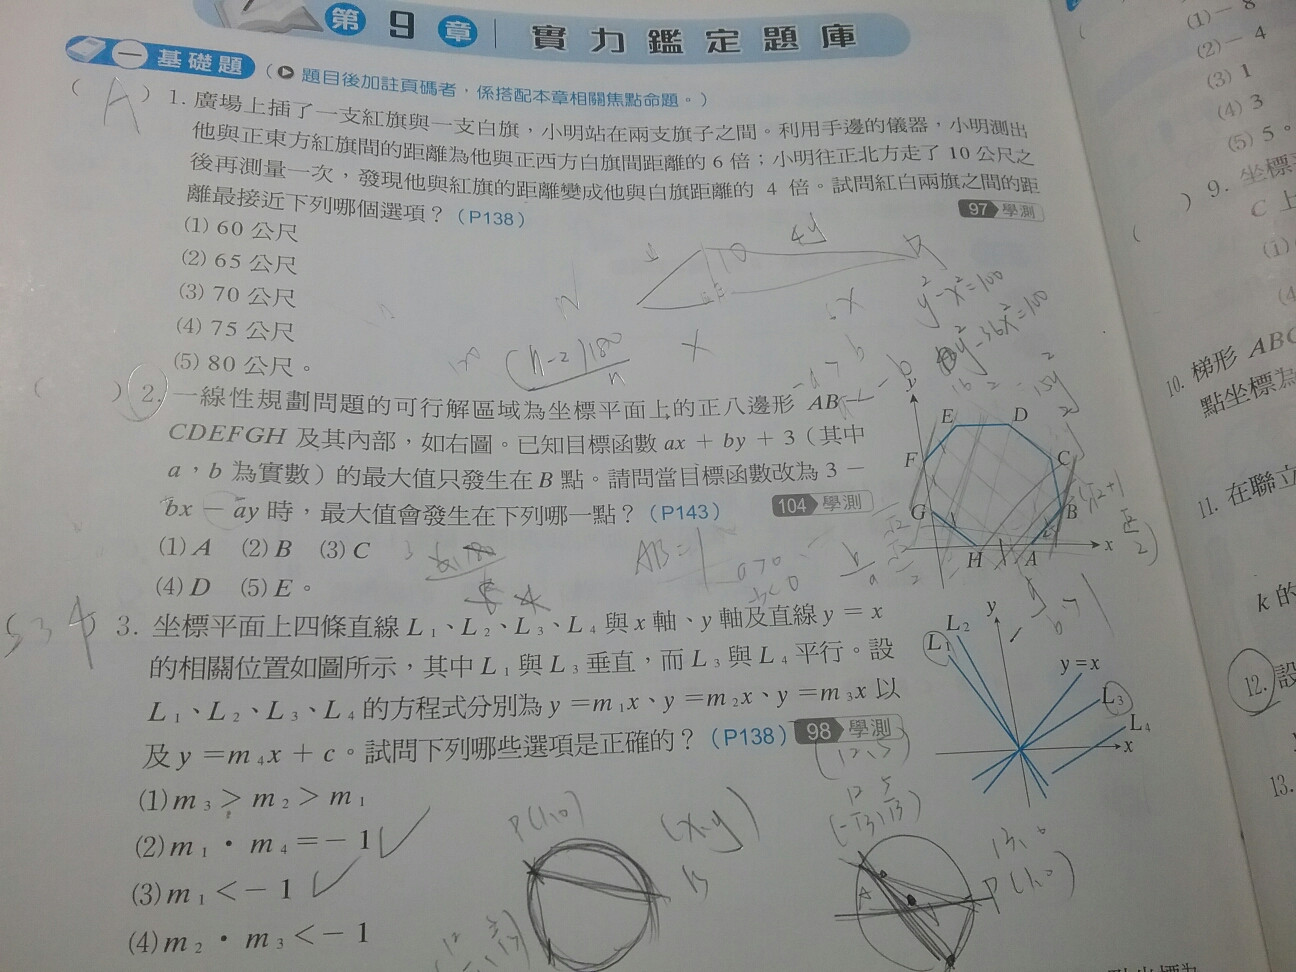 第9章 實力鑑定題庫
一 基礎題 (題目後加註頁碼者，係搭配本章相關焦點命題。)
( A ) 1. 廣場上插了一支紅旗與一支白旗，小明站在兩支旗子之間。利用手邊的儀器，小明測出
他與正東方紅旗間的距離為他與正西方白旗間距離的 6 倍；小明往正北方走了 10 公尺之
後再測量一次，發現他與紅旗的距離變成他與白旗距離的 4 倍。試問紅白兩旗之間的距
離最接近下列哪個選項？(P138) 97 學測
(1) 60 公尺
(2) 65 公尺
(3) 70 公尺
(4) 75 公尺
(5) 80 公尺。
10 4y
6x
y²-x²=100
(n-2)180
n
x
( ) 2. 一線性規劃問題的可行解區域為坐標平面上的正八邊形 AB
CDEFGH 及其內部，如右圖。已知目標函數 ax + by + 3 (其中
a，b 為實數) 的最大值只發生在 B 點。請問當目標函數改為 3 −
bx − ay 時，最大值會發生在下列哪一點？(P143) 104 學測
(1) A (2) B (3) C
(4) D (5) E。
y
E D
F C
G B
H A x
AB=1
a>0
b<0
5 3 4
3. 坐標平面上四條直線 L₁、L₂、L₃、L₄ 與 x 軸、y 軸及直線 y = x
的相關位置如圖所示，其中 L₁ 與 L₃ 垂直，而 L₃ 與 L₄ 平行。設
L₁、L₂、L₃、L₄ 的方程式分別為 y = m₁x、y = m₂x、y = m₃x 以
及 y = m₄x + c。試問下列哪些選項是正確的？(P138) 98 學測
(1) m₃ > m₂ > m₁
(2) m₁・m₄ = − 1
(3) m₁ < − 1
(4) m₂・m₃ < − 1
y
L₂
L₁
y = x
L₃
L₄
x
P(1,0)
(x,y)
(12,5)
A
P(1,0)
(1) − 8
(2) − 4
(3) 1
(4) 3
(5) 5。
) 9. 坐標
C 上
(1)
(4
10. 梯形 ABC
點坐標為
11. 在聯立
k 的
12. 設
13.